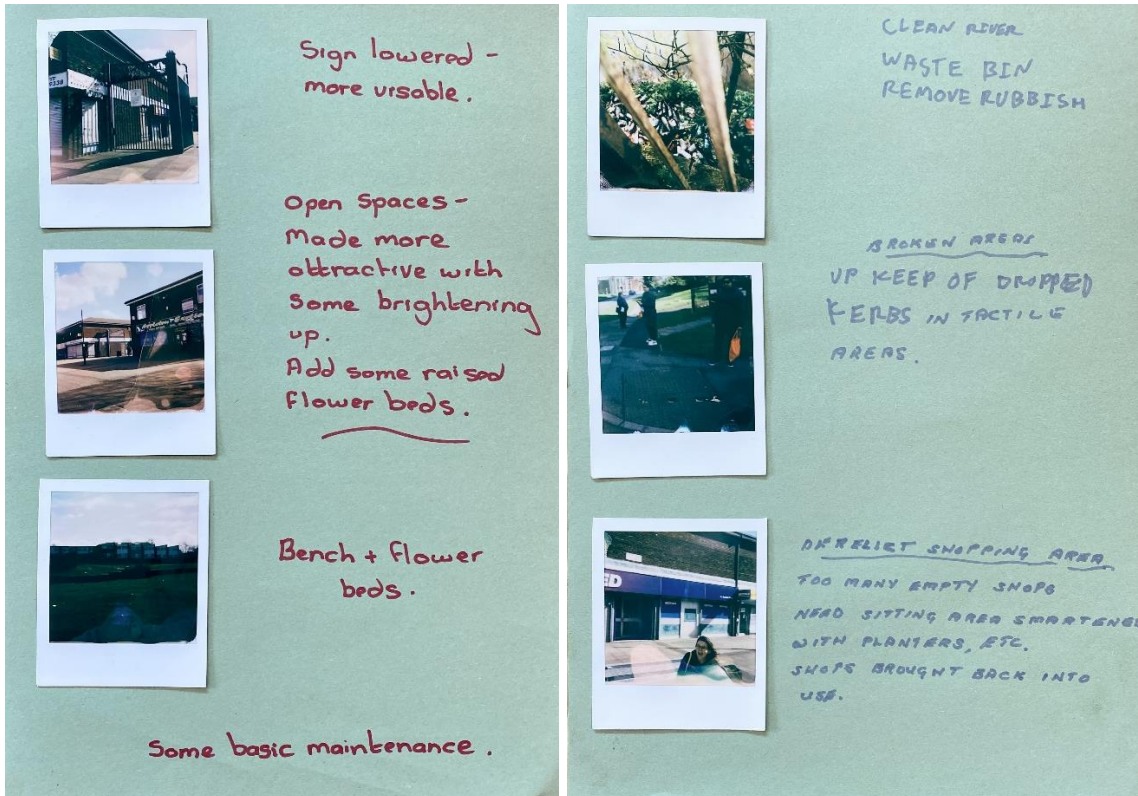 Sign lowered -
more visable.
Open Spaces -
Made more
attractive with
some brightening
up.
Add some raised
flower beds.
Bench + flower
beds.
Some basic maintenance.
CLEAN RIVER
WASTE BIN
REMOVE RUBBISH
BROKEN AREAS
UP KEEP OF DROPPED
KERBS IN TACTILE
AREAS.
DERELICT SHOPPING AREA
TOO MANY EMPTY SHOPS
NEED SITTING AREA SMARTENED
WITH PLANTERS, ETC.
SHOPS BROUGHT BACK INTO
USE.